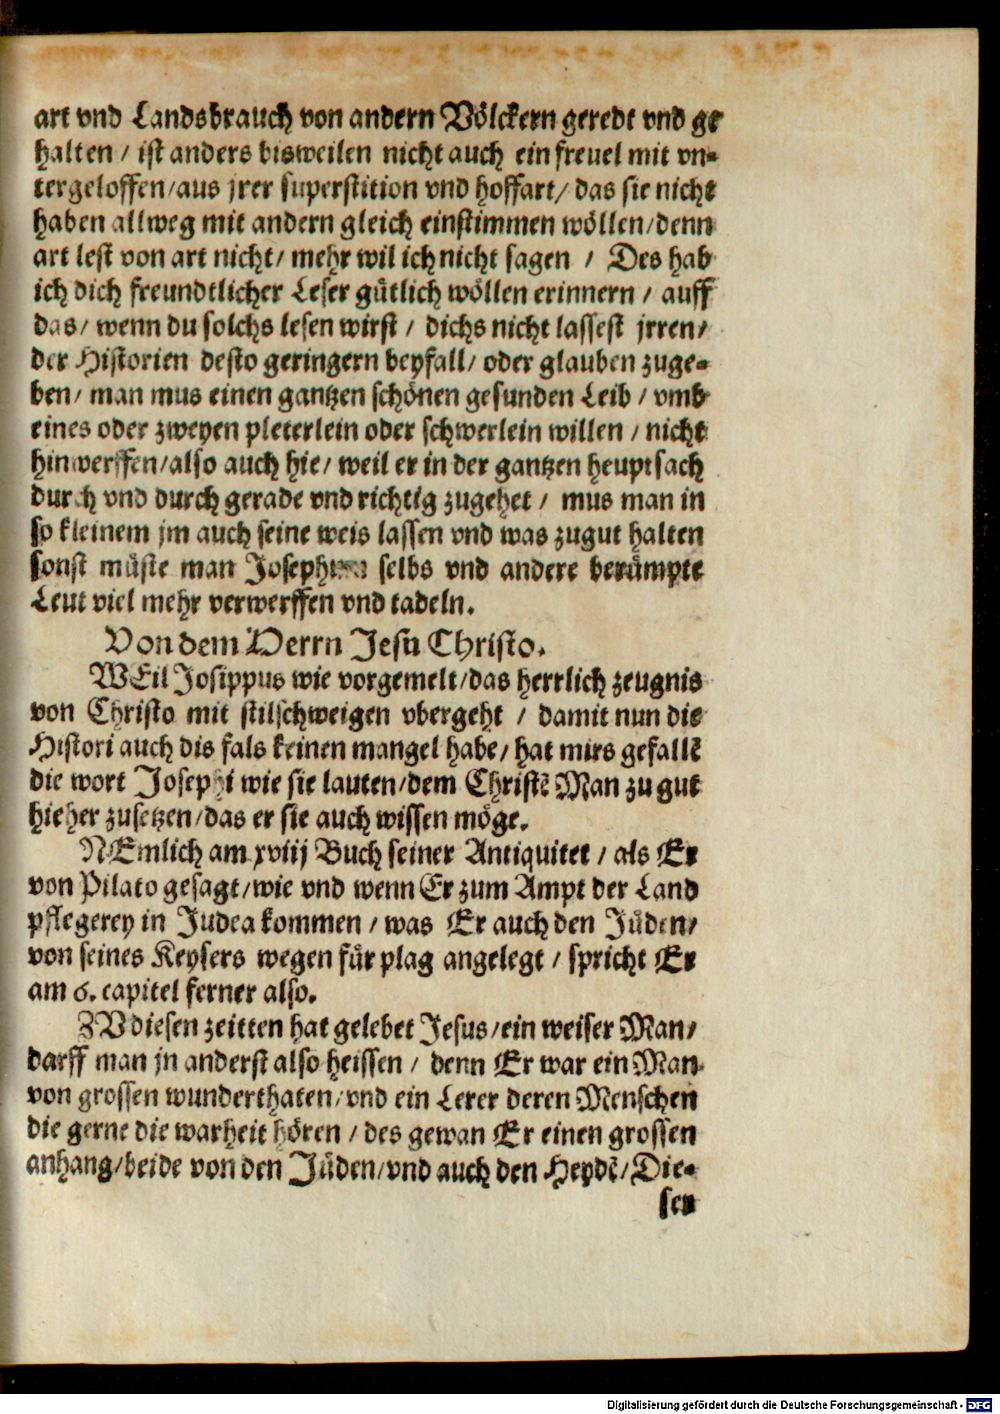 art vnd Landsbrauch von andern Völckern geredt vnd ge
halten / ist anders bisweilen nicht auch ein freuel mit vn-
tergeloffen / aus jrer superstition vnd hoffart / das sie nicht
haben allweg mit andern gleich einstimmen wöllen / denn
art lest von art nicht / mehr wil ich nicht sagen / Des hab
ich dich freundtlicher Leser gütlich wöllen erinnern / auff
das / wenn du solchs lesen wirst / dichs nicht lassest jrren /
der Historien desto geringern beyfall / oder glauben zuge-
ben / man mus einen gantzen schönen gesunden Leib / vmb
eines oder zweyen pleterlein oder schwerlein willen / nicht
hinwerffen / also auch hie / weil er in der gantzen heuptsach
durch vnd durch gerade vnd richtig zugehet / mus man in
so kleinem jm auch seine weis lassen vnd was zugut halten
sonst müste man Josephum selbs vnd andere berümpte
Leut viel mehr verwerffen vnd tadeln.
Von dem Herrn Jesu Christo.
WEil Josippus wie vorgemelt / das herrlich zeugnis
von Christo mit stilschweigen vbergeht / damit nun die
Histori auch dis fals keinen mangel habe / hat mirs gefallē
die wort Josephi wie sie lauten / dem Christē Man zu gut
hieher zusetzen / das er sie auch wissen möge.
NEmlich am xviij Buch seiner Antiquitet / als Er
von Pilato gesagt / wie vnd wenn Er zum Ampt der Land
pflegerey in Judea kommen / was Er auch den Jüden /
von seines Keysers wegen für plag angelegt / spricht Er
am 6. capitel ferner also.
ZV diesen zeitten hat gelebet Jesus / ein weiser Man /
darff man jn anderst also heissen / denn Er war ein Man
von grossen wunderthaten / vnd ein Lerer deren Menschen
die gerne die warheit hören / des gewan Er einen grossen
anhang / beide von den Jüden / vnd auch den Heydē / Die-
sen
Digitalisierung gefördert durch die Deutsche Forschungsgemeinschaft - DFG